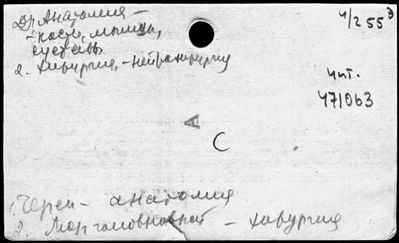 Др Анатомия –
– кости, мышцы,
суставы
2. Хирургия, – нейрохирургия
4/255³
Чит.
47/063
А
С
1. Череп – анатомия
2. – хирургия